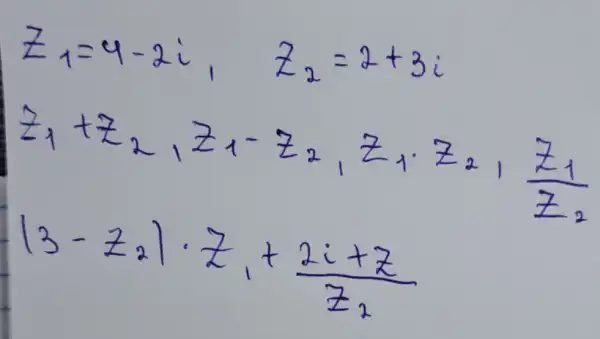 z₁=4-2i, z₂=2+3i
z₁+z₂, z₁-z₂, z₁·z₂, z₁/z₂
|3-z₂|·z₁+(2i+z)/z₂